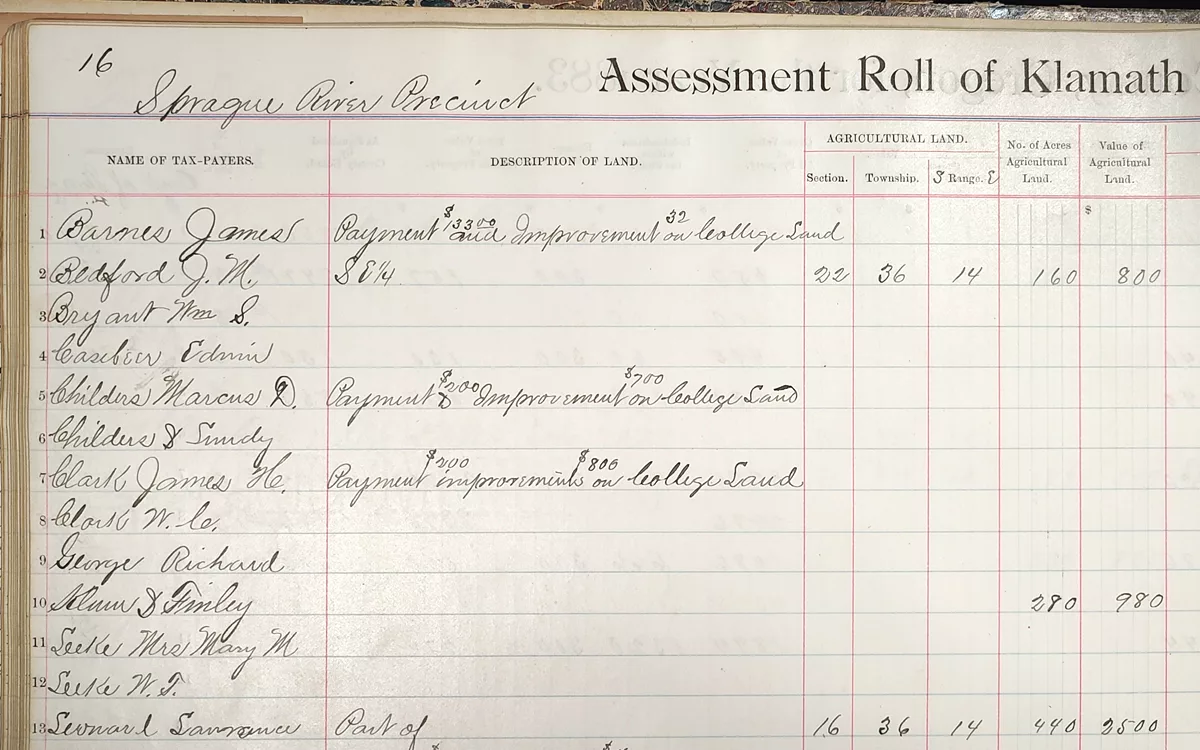 16
Sprague River Precinct
Assessment Roll of Klamath
NAME OF TAX-PAYERS. DESCRIPTION OF LAND. AGRICULTURAL LAND. No. of Acres Agricultural Land. Value of Agricultural Land.
Section. Township. S Range. E
$
1 Barnes James Payment $133 00 and Improvement 32 on College Land
2 Bedford J. M. S E 1/4 22 36 14 160 800
3 Bryant Wm S.
4 Casebeer Edwin
5 Childers Marcus D. Payment $200 & Improvement $700 on College Land
6 Childers & Sundy
7 Clark James H. Payment $200 improvements $800 on College Land
8 Clark W. C.
9 George Richard
10 & Finley 280 980
11 Leeke Mrs Mary M
12 Leeke W. T.
13 Leonard Lawrence Part of 16 36 14 440 2500